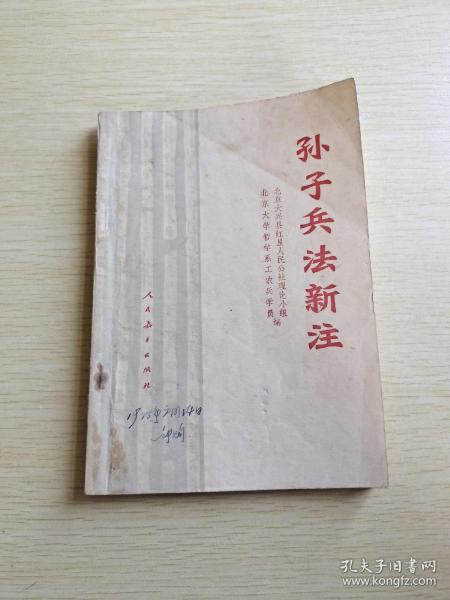 孙子兵法新注
北京大兴县红星人民公社理论小组
北京大学哲学系工农兵学员编
人民教育出版社
孔夫子旧书网
www.kongfz.com